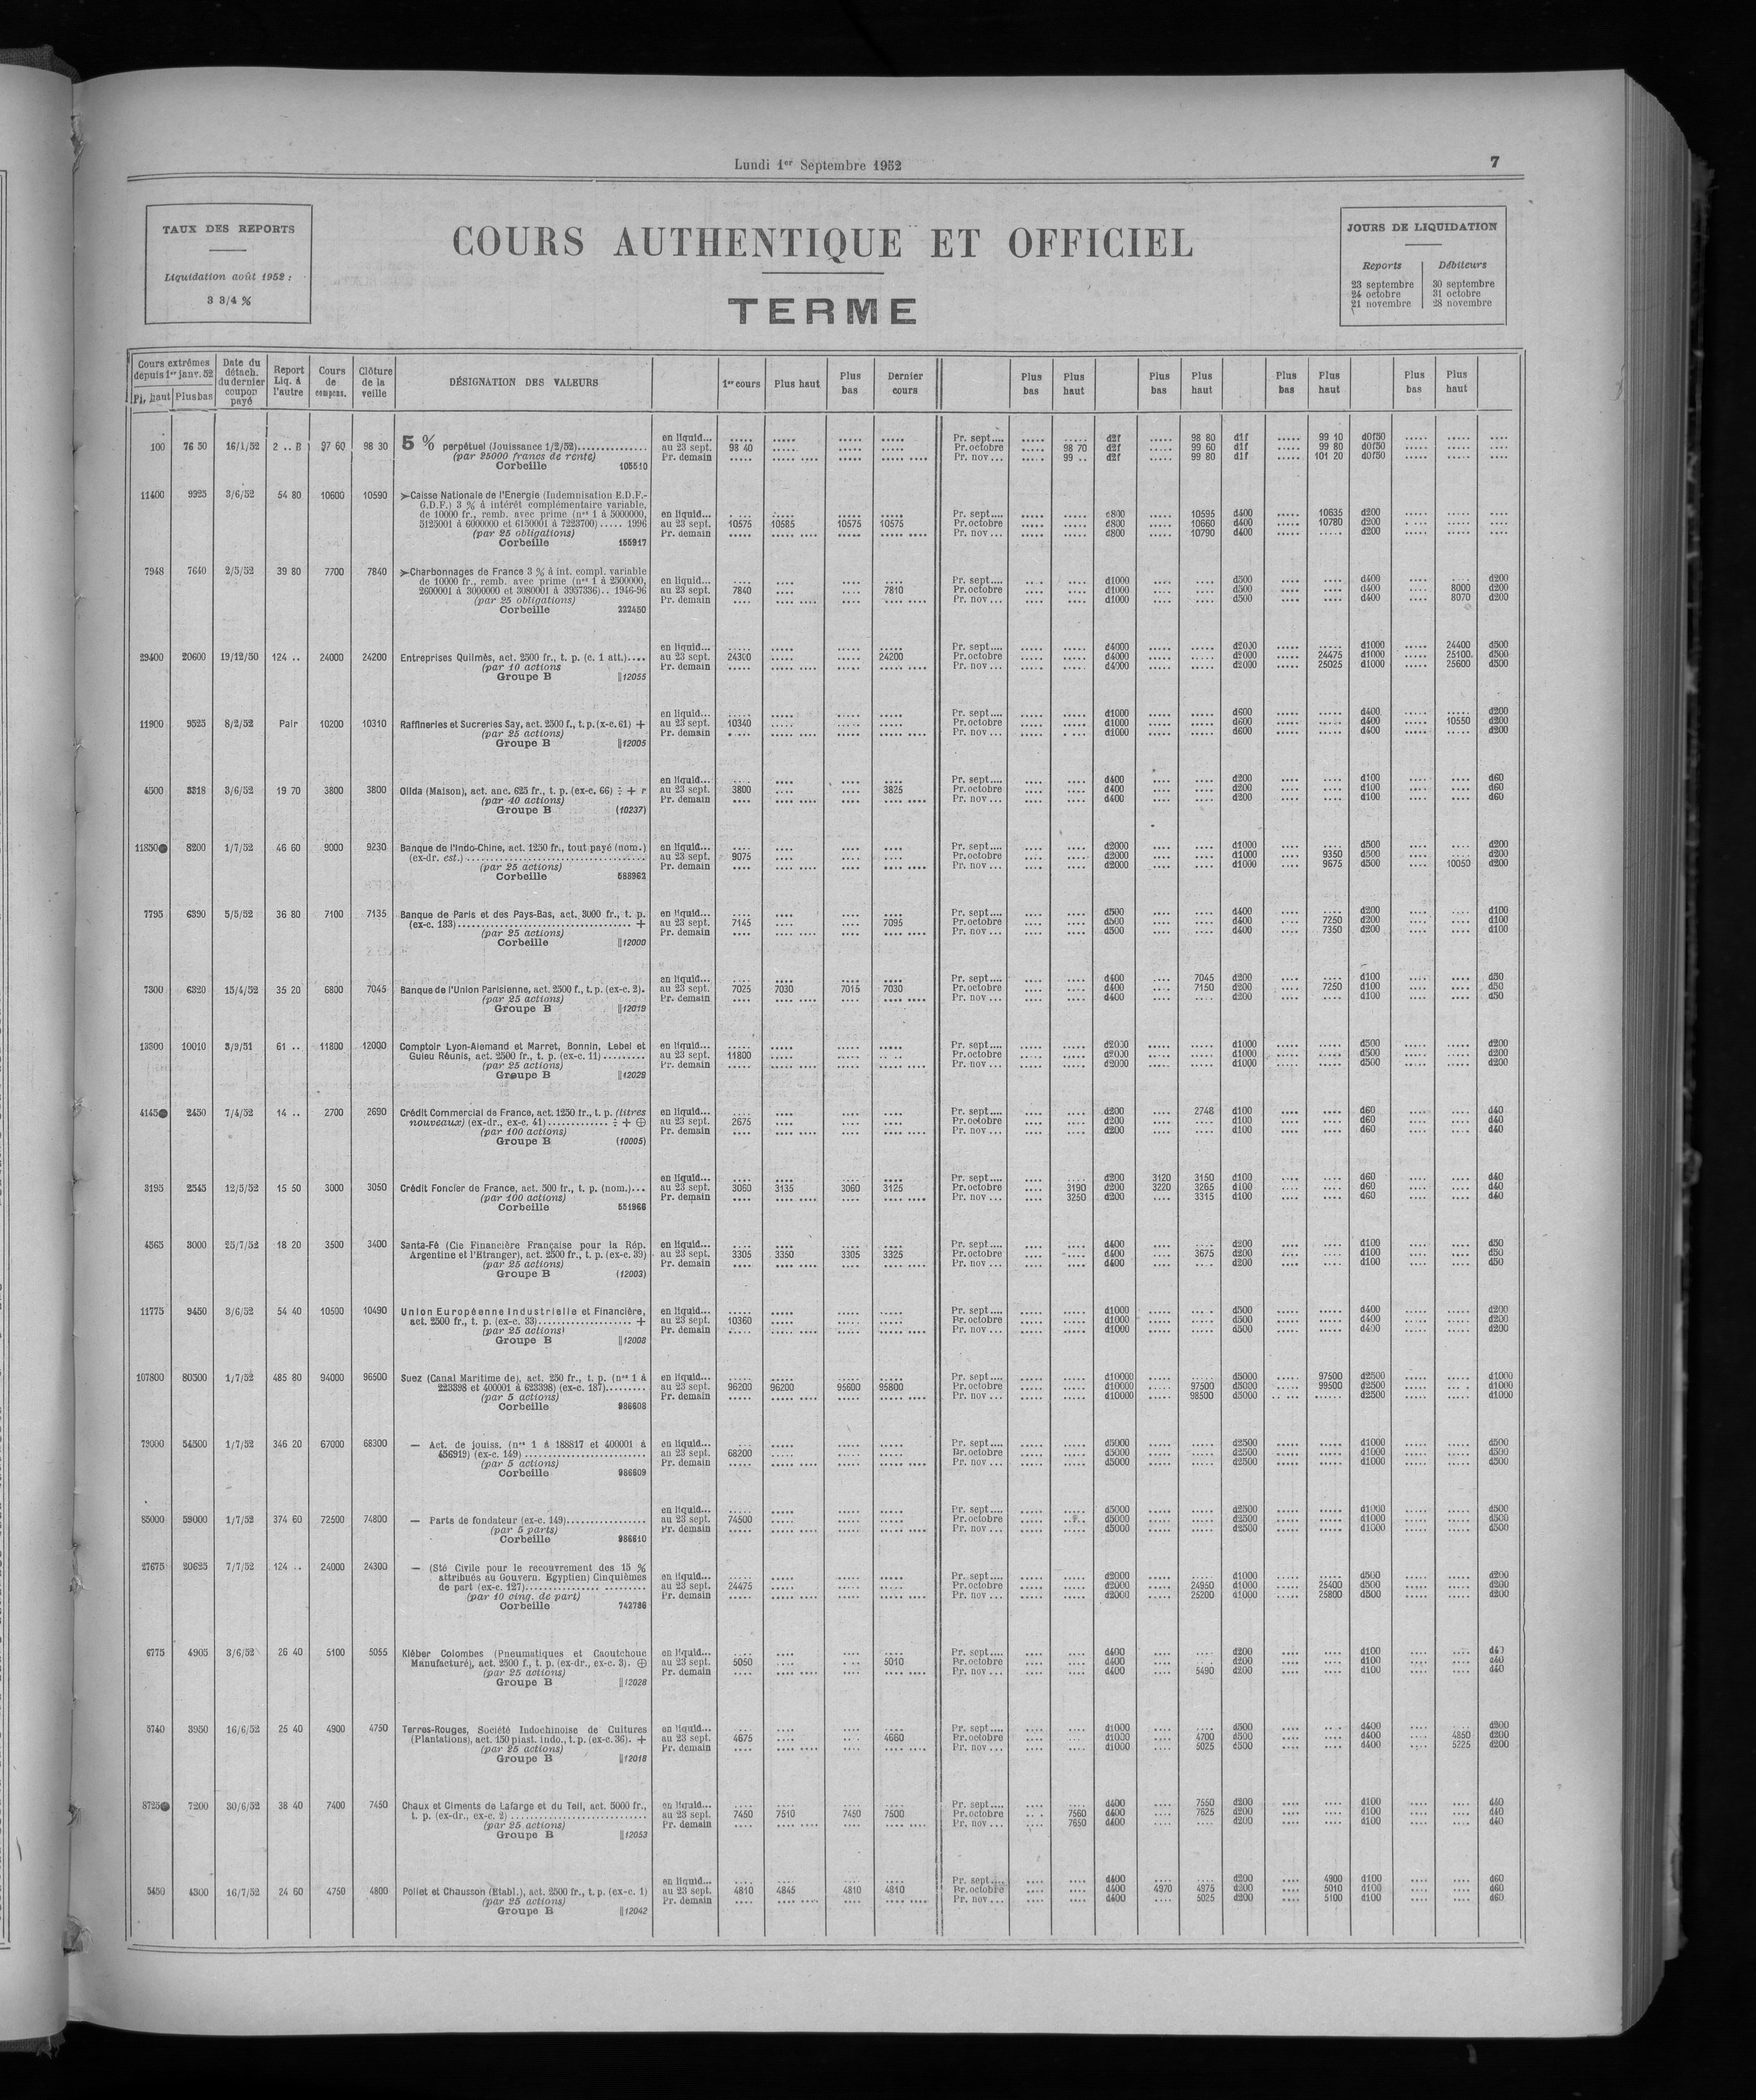 Lundi 1er Septembre 1952
7
TAUX DES REPORTS
Liquidation août 1952 :
3 3/4 %
COURS AUTHENTIQUE ET OFFICIEL
TERME
JOURS DE LIQUIDATION
Reports Débiteurs
23 septembre 30 septembre
24 octobre 31 octobre
21 novembre 28 novembre
Cours extrêmes depuis 1er janv. 52 Pl. haut Plus bas Date du détach. du dernier coupon payé Report Liq. à l'autre Cours de compens. Clôture de la veille DÉSIGNATION DES VALEURS 1er cours Plus haut Plus bas Dernier cours Plus bas Plus haut Plus bas Plus haut Plus bas Plus haut Plus bas Plus haut
en liquid... Pr. sept.... d2f 98 80 d1f 99 10 d0f50
100 76 50 16/1/52 2 .. B 97 60 98 30 5 % perpétuel (Jouissance 1/2/52) au 23 sept. 98 40 Pr. octobre 98 70 d2f 99 60 d1f 99 80 d0f50
(par 25000 francs de rente) Pr. demain Pr. nov... 99 .. d2f 99 80 d1f 101 20 d0f50
Corbeille 105510
11400 9325 3/6/52 54 80 10600 10590 ➢Caisse Nationale de l'Energie (Indemnisation E.D.F.-
G.D.F.) 3 % à intérêt complémentaire variable,
de 10000 fr., remb. avec prime (nos 1 à 5000000, en liquid... Pr. sept.... d800 10595 d400 10635 d200
5125001 à 6000000 et 6150001 à 7223700)..... 1996 au 23 sept. 10575 10585 10575 10575 Pr. octobre d800 10660 d400 10780 d200
(par 25 obligations) Pr. demain Pr. nov... d800 10790 d400 d200
Corbeille 155917
7948 7640 2/5/52 39 80 7700 7840 ➢Charbonnages de France 3 % à int. compl. variable
de 10000 fr., remb. avec prime (nos 1 à 2500000, en liquid... Pr. sept.... d1000 d500 d400 d200
2600001 à 3000000 et 3080001 à 3957336).. 1946-96 au 23 sept. 7840 7810 Pr. octobre d1000 d500 d400 8000 d200
(par 25 obligations) Pr. demain Pr. nov... d1000 d500 d400 8070 d200
Corbeille 222450
en liquid... Pr. sept.... d4000 d2000 d1000 24400 d500
29400 20600 19/12/50 124 .. 24000 24200 Entreprises Quilmès, act. 2500 fr., t. p. (c. 1 att.).... au 23 sept. 24300 24200 Pr. octobre d4000 d2000 24475 d1000 25100 d500
(par 10 actions Pr. demain Pr. nov... d4000 d2000 25025 d1000 25600 d500
Groupe B ||12055
en liquid... Pr. sept.... d1000 d600 d400 d200
11900 9525 8/2/52 Pair 10200 10310 Raffineries et Sucreries Say, act. 2500 f., t. p. (x-c. 61) + au 23 sept. 10340 Pr. octobre d1000 d600 d400 10550 d200
(par 25 actions) Pr. demain Pr. nov... d1000 d600 d400 d200
Groupe B ||12005
en liquid... Pr. sept.... d400 d200 d100 d60
4500 3318 3/6/52 19 70 3800 3800 Olida (Maison), act. anc. 625 fr., t. p. (ex-c. 66) ÷ + r au 23 sept. 3800 3825 Pr. octobre d400 d200 d100 d60
(par 40 actions) Pr. demain Pr. nov... d400 d200 d100 d60
Groupe B (10237)
11850● 8200 1/7/52 46 60 9000 9230 Banque de l'Indo-Chine, act. 1250 fr., tout payé (nom.) en liquid... Pr. sept.... d2000 d1000 d500 d200
(ex-dr. est.) au 23 sept. 9075 Pr. octobre d2000 d1000 9350 d500 d200
(par 25 actions) Pr. demain Pr. nov... d2000 d1000 9675 d500 10050 d200
Corbeille 588962
7795 6390 5/5/52 36 80 7100 7135 Banque de Paris et des Pays-Bas, act. 3000 fr., t. p. en liquid... Pr. sept.... d500 d400 d200 d100
(ex-c. 133) + au 23 sept. 7145 7095 Pr. octobre d500 d400 7250 d200 d100
(par 25 actions) Pr. demain Pr. nov... d500 d400 7350 d200 d100
Corbeille ||12000
en liquid... Pr. sept.... d400 7045 d200 d100 d50
7300 6320 15/4/52 35 20 6800 7045 Banque de l'Union Parisienne, act. 2500 f., t. p. (ex-c. 2). au 23 sept. 7025 7030 7015 7030 Pr. octobre d400 7150 d200 7250 d100 d50
(par 25 actions) Pr. demain Pr. nov... d400 d200 d100 d50
Groupe B ||12019
13300 10010 3/9/51 61 .. 11800 12000 Comptoir Lyon-Alemand et Marret, Bonnin, Lebel et en liquid... Pr. sept.... d2000 d1000 d500 d200
Guieu Réunis, act. 2500 fr., t. p. (ex-c. 11) au 23 sept. 11800 Pr. octobre d2000 d1000 d500 d200
(par 25 actions) Pr. demain Pr. nov... d2000 d1000 d500 d200
Groupe B ||12029
4145● 2450 7/4/52 14 .. 2700 2690 Crédit Commercial de France, act. 1250 fr., t. p. (titres en liquid... Pr. sept.... d200 2748 d100 d60 d40
nouveaux) (ex-dr., ex-c. 41) ÷ + ⊕ au 23 sept. 2675 Pr. octobre d200 d100 d60 d40
(par 100 actions) Pr. demain Pr. nov... d200 d100 d60 d40
Groupe B (10005)
en liquid... Pr. sept.... d200 3120 3150 d100 d60 d40
3195 2545 12/5/52 15 50 3000 3050 Crédit Foncier de France, act. 500 fr., t. p. (nom.)... au 23 sept. 3060 3135 3060 3125 Pr. octobre 3190 d200 3220 3265 d100 d60 d40
(par 100 actions) Pr. demain Pr. nov... 3250 d200 3315 d100 d60 d40
Corbeille 551966
4565 3000 25/7/52 18 20 3500 3400 Santa-Fé (Cie Financière Française pour la Rép. en liquid... Pr. sept.... d400 d200 d100 d50
Argentine et l'Etranger), act. 2500 fr., t. p. (ex-c. 39) au 23 sept. 3305 3350 3305 3325 Pr. octobre d400 3675 d200 d100 d50
(par 25 actions) Pr. demain Pr. nov... d400 d200 d100 d50
Groupe B (12003)
11775 9450 3/6/52 54 40 10500 10490 Union Européenne Industrielle et Financière, en liquid... Pr. sept.... d1000 d500 d400 d200
act. 2500 fr., t. p. (ex-c. 33) + au 23 sept. 10360 Pr. octobre d1000 d500 d400 d200
(par 25 actions) Pr. demain Pr. nov... d1000 d500 d400 d200
Groupe B ||12008
107800 80300 1/7/52 485 80 94000 96500 Suez (Canal Maritime de), act. 250 fr., t. p. (nos 1 à en liquid... Pr. sept.... d10000 d5000 97500 d2500 d1000
223398 et 400001 à 623398) (ex-c. 187) au 23 sept. 96200 96200 95600 95800 Pr. octobre d10000 97500 d5000 99500 d2500 d1000
(par 5 actions) Pr. demain Pr. nov... d10000 98500 d5000 d2500 d1000
Corbeille 986608
73000 54500 1/7/52 346 20 67000 68300 — Act. de jouiss. (nos 1 à 188817 et 400001 à en liquid... Pr. sept.... d5000 d2500 d1000 d500
456919) (ex-c. 149) au 23 sept. 68200 Pr. octobre d5000 d2500 d1000 d500
(par 5 actions) Pr. demain Pr. nov... d5000 d2500 d1000 d500
Corbeille 986609
en liquid... Pr. sept.... d5000 d2500 d1000 d500
85000 59000 1/7/52 374 60 72500 74800 — Parts de fondateur (ex-c. 149) au 23 sept. 74500 Pr. octobre d5000 d2500 d1000 d500
(par 5 parts) Pr. demain Pr. nov... d5000 d2500 d1000 d500
Corbeille 986610
27675 20625 7/7/52 124 .. 24000 24300 — (Sté Civile pour le recouvrement des 15 %
attribués au Gouvern. Egyptien) Cinquièmes en liquid... Pr. sept.... d2000 d1000 d500 d200
de part (ex-c. 127) au 23 sept. 24475 Pr. octobre d2000 24950 d1000 25400 d500 d200
(par 10 cinq. de part) Pr. demain Pr. nov... d2000 25200 d1000 25800 d500 d200
Corbeille 742786
6775 4905 3/6/52 26 40 5100 5055 Kléber Colombes (Pneumatiques et Caoutchouc en liquid... Pr. sept.... d400 d200 d100 d40
Manufacturé), act. 2500 f., t. p. (ex-dr., ex-c. 3). ⊕ au 23 sept. 5050 5010 Pr. octobre d400 d200 d100 d40
(par 25 actions) Pr. demain Pr. nov... d400 5490 d200 d100 d40
Groupe B ||12028
5740 3950 16/6/52 25 40 4900 4750 Terres-Rouges, Société Indochinoise de Cultures en liquid... Pr. sept.... d1000 d500 d400 d200
(Plantations), act. 150 piast. indo., t. p. (ex-c. 36). + au 23 sept. 4675 4660 Pr. octobre d1000 4700 d500 d400 4850 d200
(par 25 actions) Pr. demain Pr. nov... d1000 5025 d500 d400 5225 d200
Groupe B ||12018
8725● 7200 30/6/52 38 40 7400 7450 Chaux et Ciments de Lafarge et du Teil, act. 5000 fr., en liquid... Pr. sept.... d400 7550 d200 d100 d40
t. p. (ex-dr., ex-c. 2) au 23 sept. 7450 7510 7450 7500 Pr. octobre 7560 d400 7625 d200 d100 d40
(par 25 actions) Pr. demain Pr. nov... 7650 d400 d200 d100 d40
Groupe B ||12053
en liquid... Pr. sept.... d400 d200 4900 d100 d60
5450 4300 16/7/52 24 60 4750 4800 Poliet et Chausson (Etabl.), act. 2500 fr., t. p. (ex-c. 1) au 23 sept. 4810 4845 4810 4810 Pr. octobre d400 4970 4975 d200 5010 d100 d60
(par 25 actions) Pr. demain Pr. nov... d400 5025 d200 5100 d100 d60
Groupe B ||12042